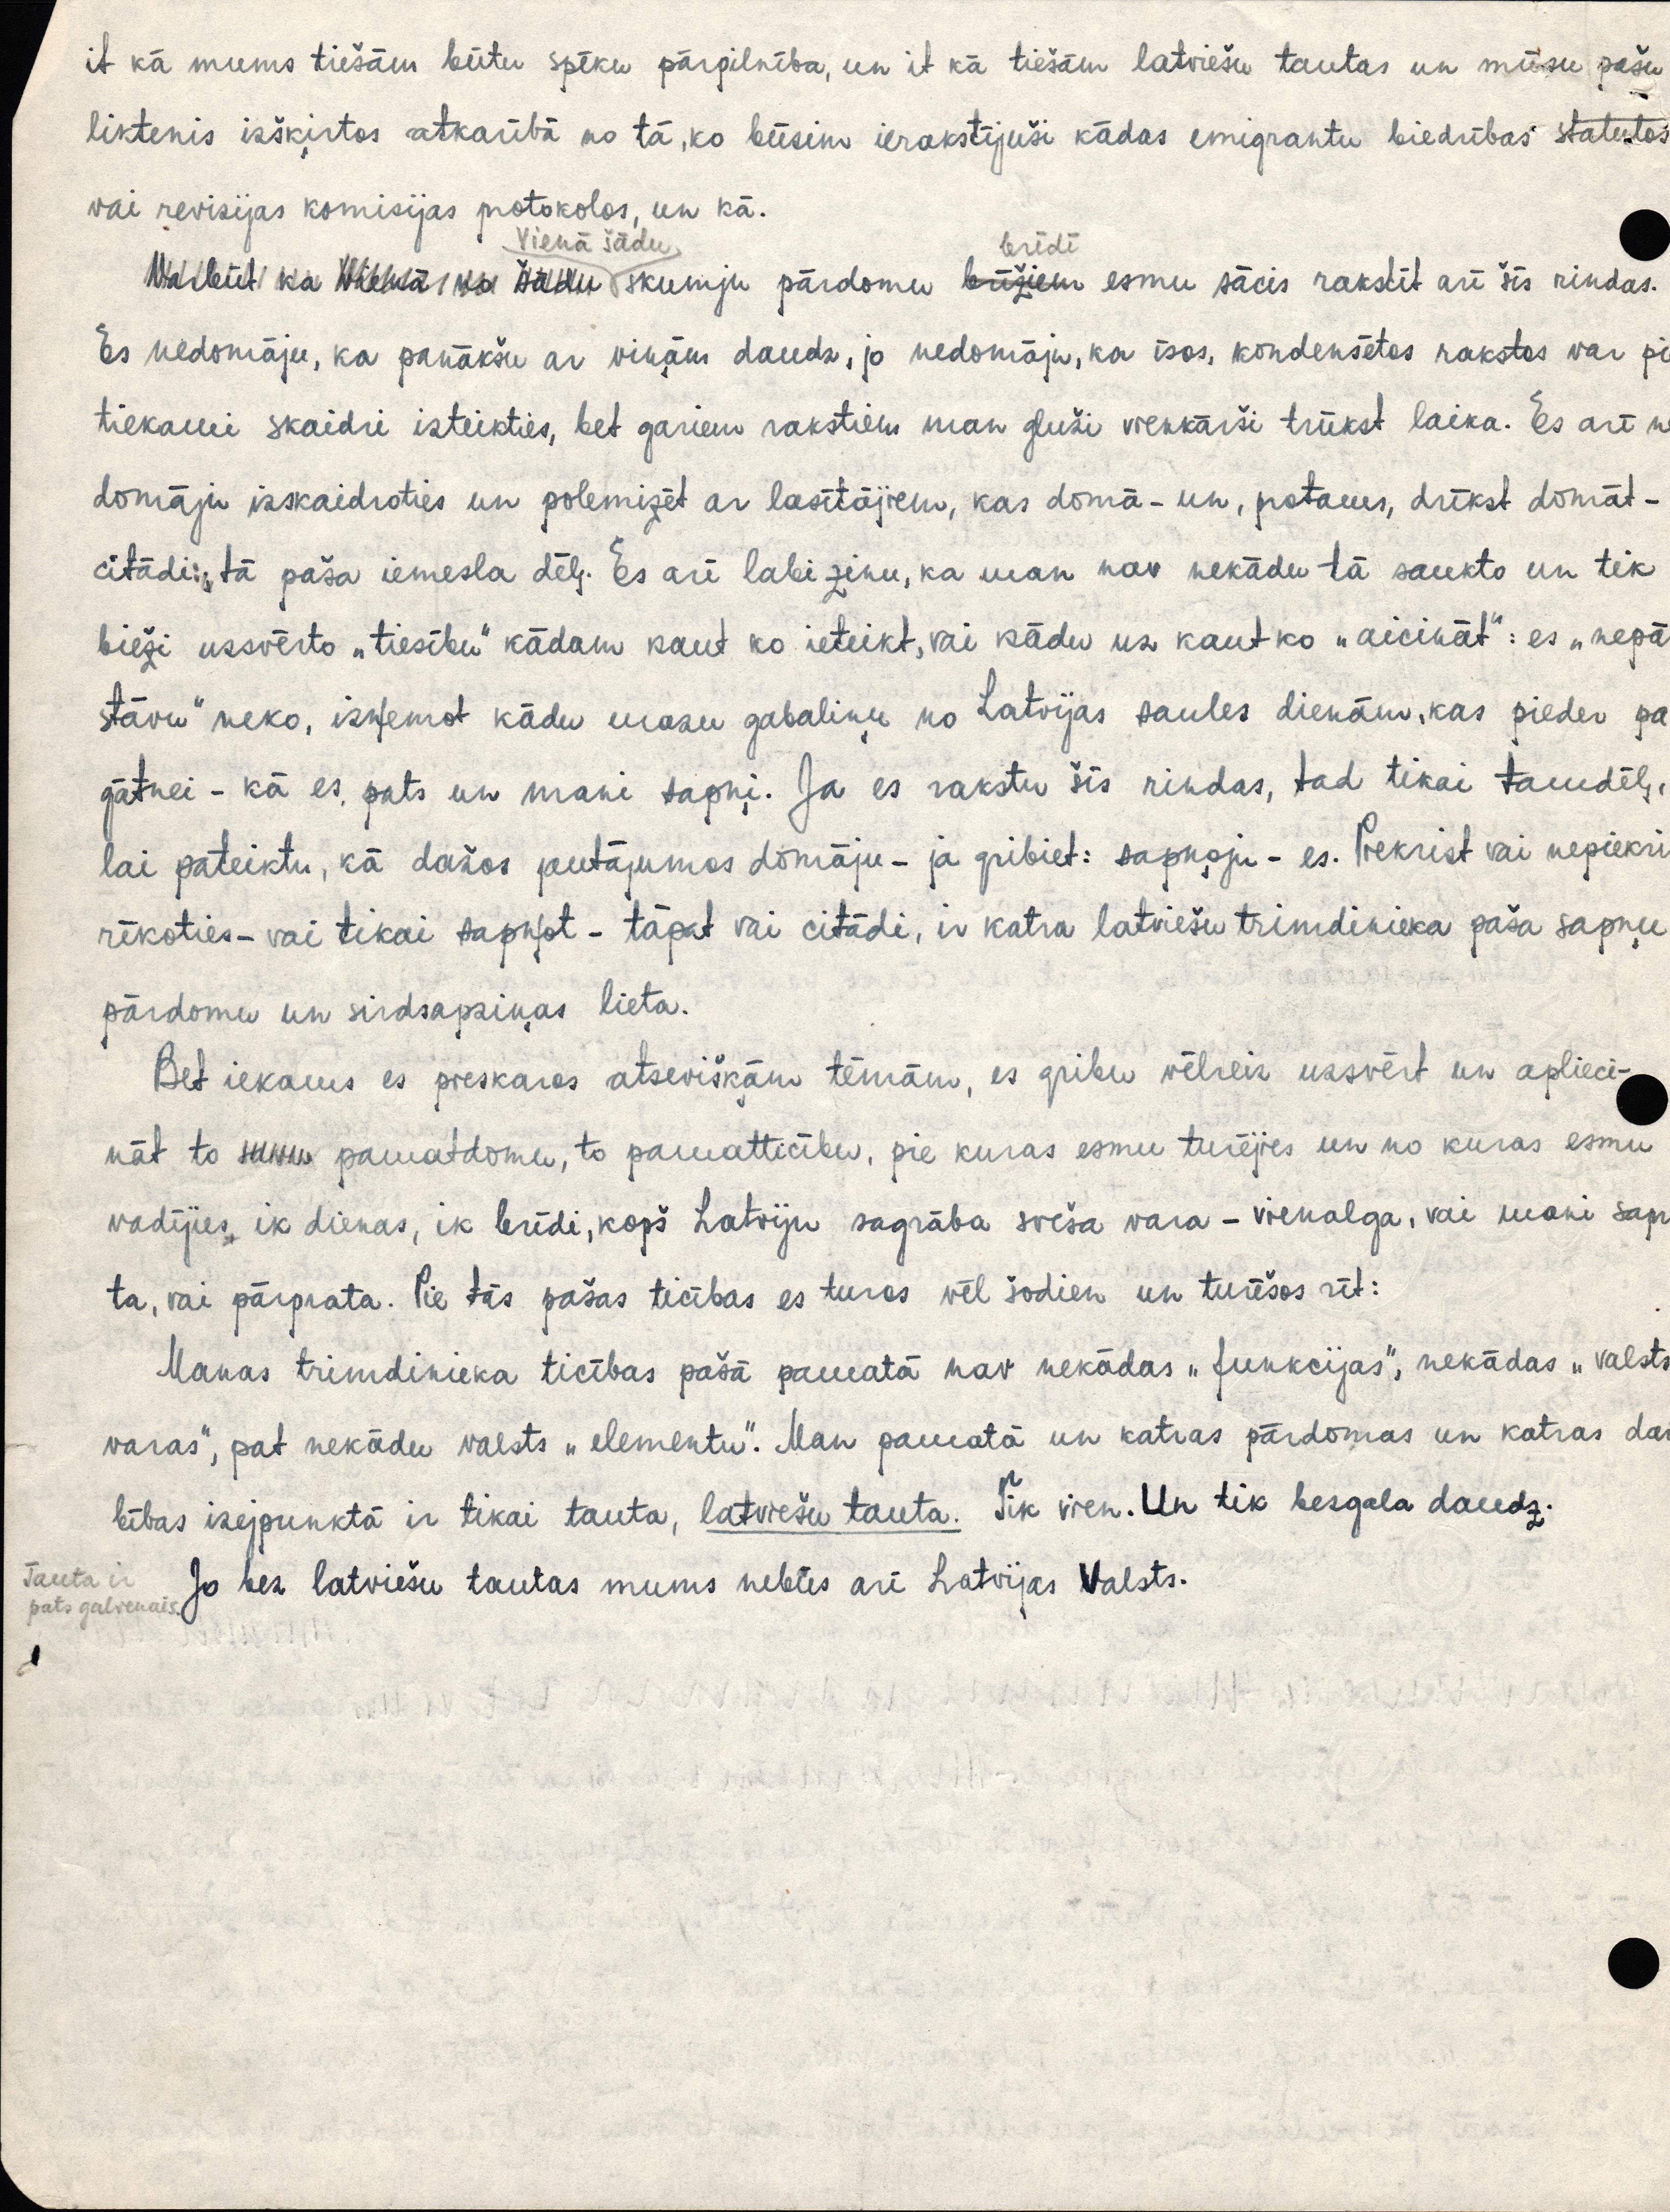 it kā mums tiešām būtu spēku pārpilnība, un it kā tiešām latviešu tautas un mūsu pašu
liktenis izšķirtos atkarībā no tā, ko būsim ierakstījuši kādas emigrantu biedrības statutos
vai revizijas komisijas protokolos, un kā.
Vienā šādu
brīdī
Varbūt ka Vienā no šādu skumju pārdomu brīžiem esmu sācis rakstīt arī šīs rindas.
Es nedomāju, ka panākšu ar viņām daudz, jo nedomāju, ka īsos, kondensētos rakstos var pie
tiekami skaidri izteikties, bet gariem rakstiem man gluži vienkārši trūkst laika. Es arī ne
domāju izskaidroties un polemizēt ar lasītājiem, kas domā - un, protams, drīkst domāt -
citādi: tā paša iemesla dēļ. Es arī labi zinu, ka man nav nekādu tā saukto un tik
bieži uzsvērto „tiesību" kādam kaut ko ieteikt, vai kādu uz kaut ko „aicināt": es „nepār
stāvu" neko, izņemot kādu mazu gabaliņu no Latvijas saules dienām, kas pieder pa
gātnei - kā es pats un mani sapņi. Ja es rakstu šīs rindas, tad tikai tamdēļ,
lai pateiktu, kā dažos jautājumos domāju - ja gribiet: sapņoju - es. Piekrist vai nepiekri
rīkoties - vai tikai sapņot - tāpat vai citādi, ir katra latviešu trimdinieka paša sapņu
pārdomu un sirdsapziņas lieta.
Bet iekams es pieskaros atsevišķām tēmām, es gribu vēlreiz uzsvērt un aplieci-
nāt to savu pamatdomu, to pamatticību, pie kuras esmu turējies un no kuras esmu
vadījies ik dienas, ik brīdi, kopš Latviju sagrāba sveša vara - vienalga, vai mani sapra
ta, vai pārprata. Pie tās pašas ticības es turos vēl šodien un turēšos rīt:
Manas trimdinieka ticības pašā pamatā nav nekādas „funkcijas", nekādas „valsts
varas", pat nekādu valsts „elementu". Man pamatā un katras pārdomas un katras dar
bības izejpunktā ir tikai tauta, latviešu tauta. Tik vien. Un tik bezgala daudz.
Tauta ir
pats galvenais.
Jo bez latviešu tautas mums nebūs arī Latvijas Valsts.